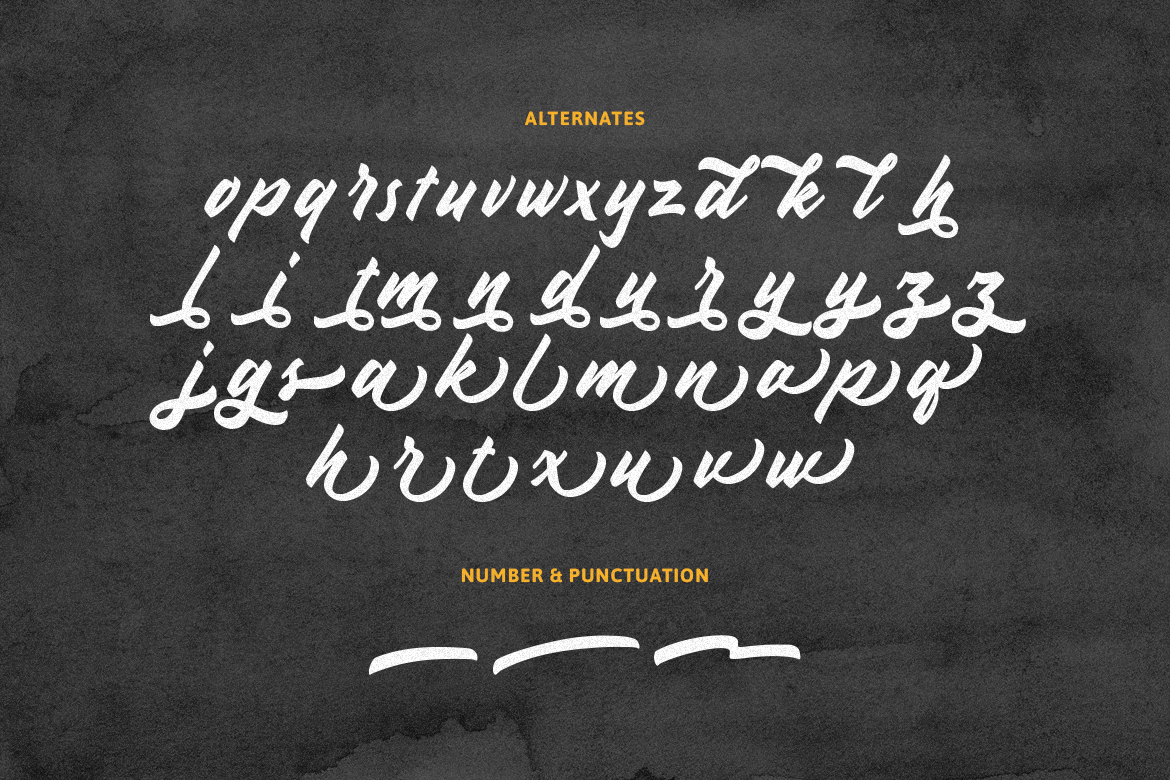 ALTERNATES
opqrstuvwxyzdklh
litmnduryyzz
jgsaklmnapq
hrtxuvw
NUMBER & PUNCTUATION